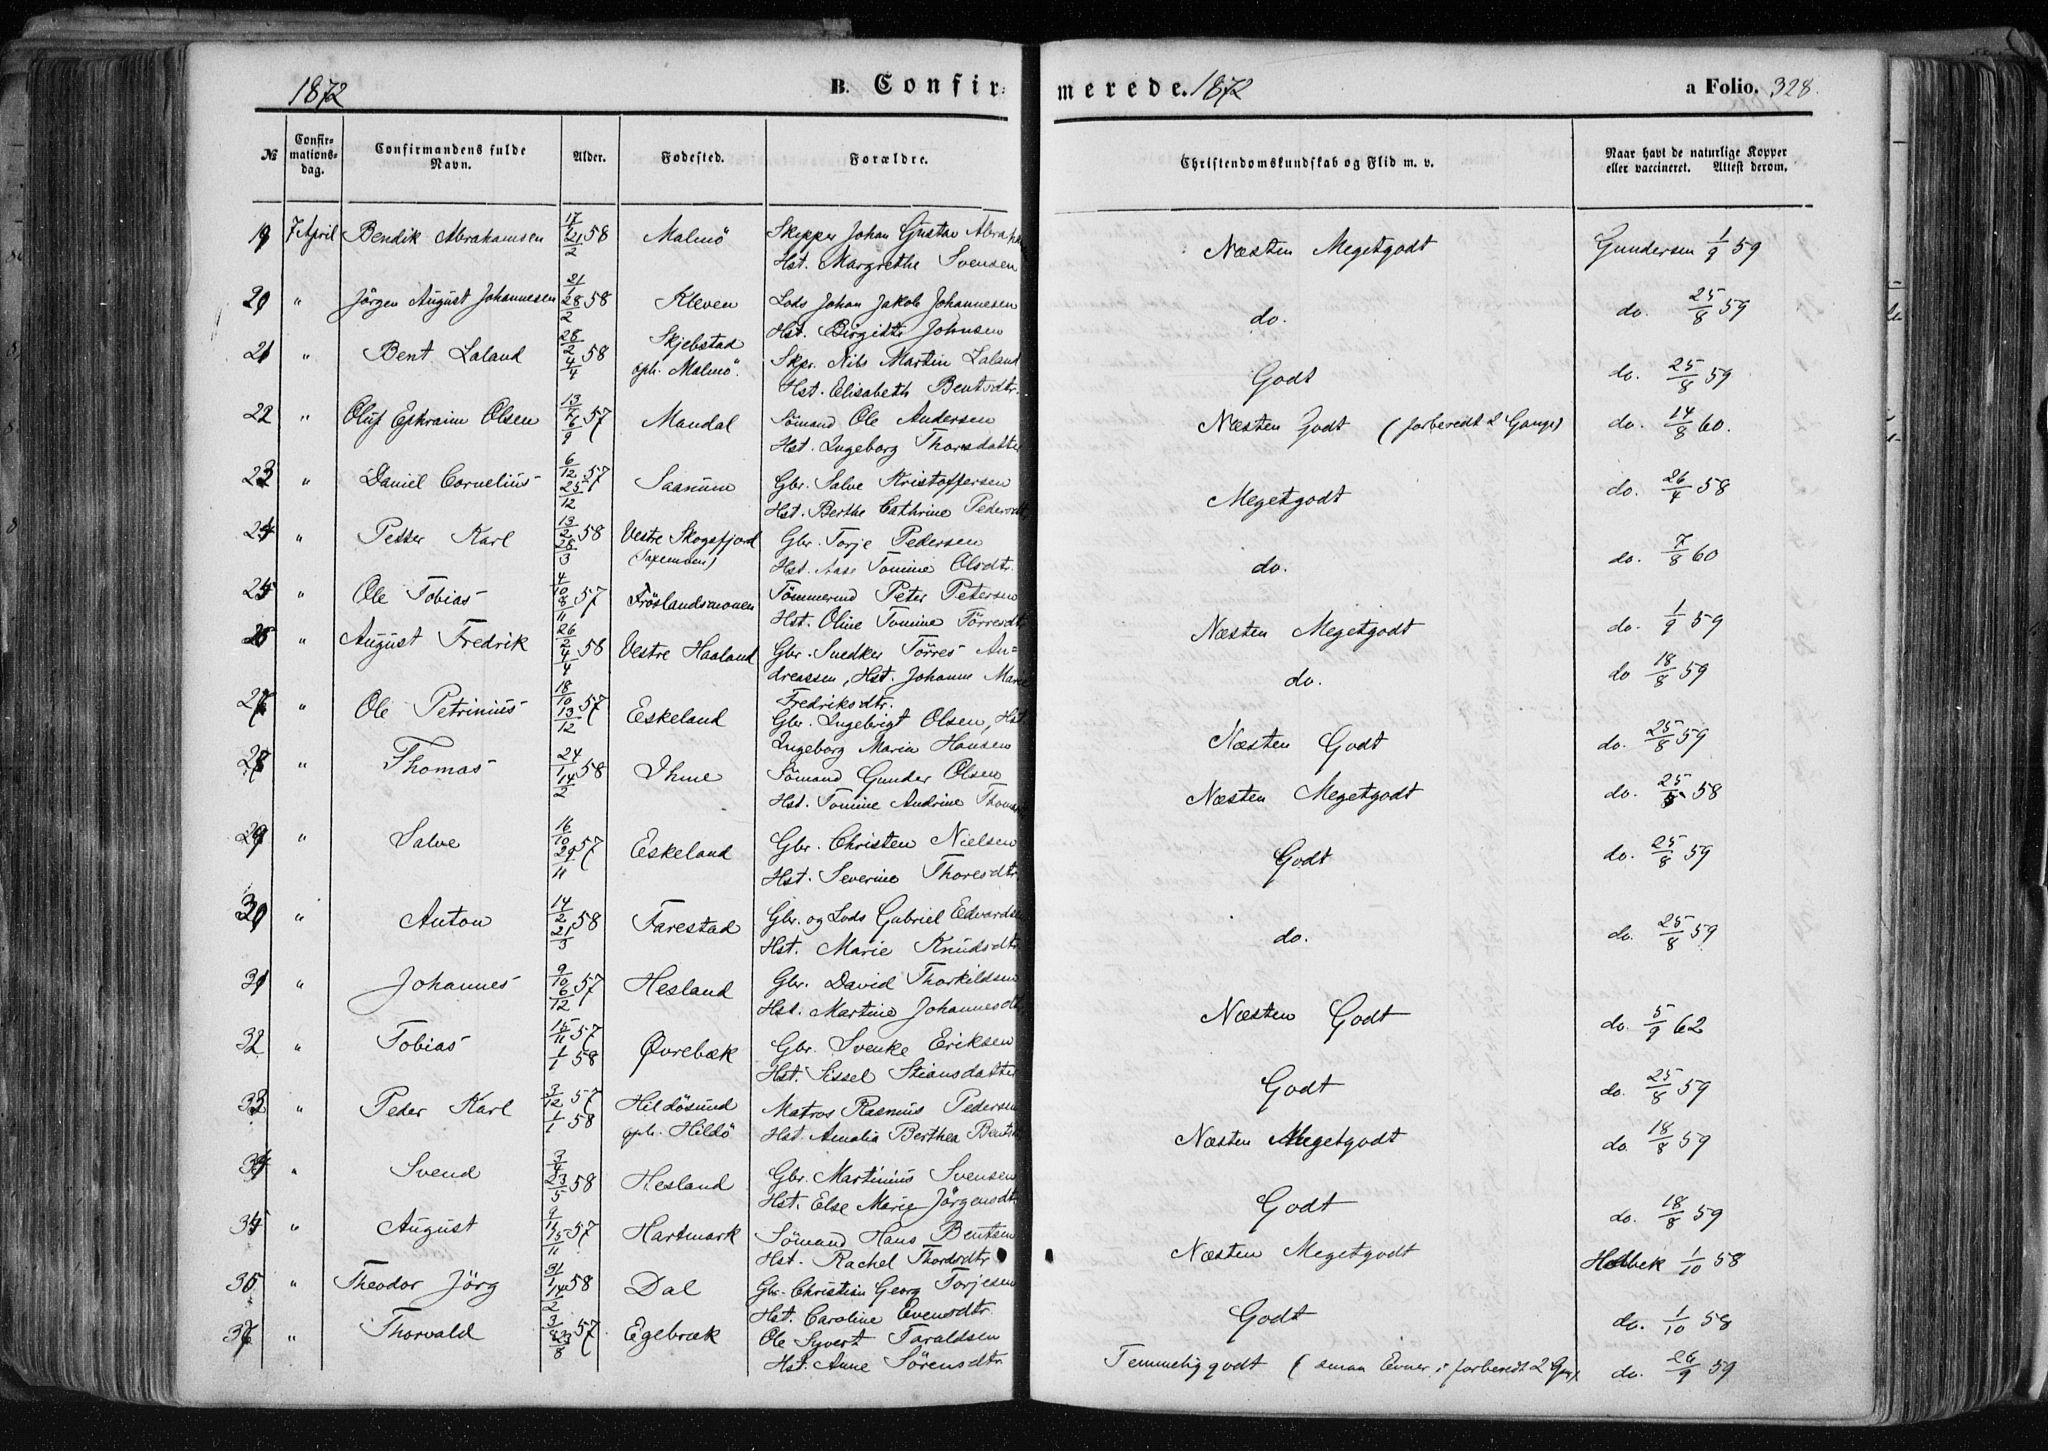 1872 B. Confirmerede. 1872 a Folio. 328.
№ Confirmationsdag. Confirmandens fulde Navn. Alder. Fødested. Forældre. Christendomskundskab og Flid m. v. Naar havt de naturlige Kopper eller vaccineret. Attest derom.
19 7 April Bendik Abrahamsen 17/1 21/2 58 Malmö Skipper Johan Gustav Abrah
Hst. Margrethe Svensen Næsten Megetgodt Gundersen 1/9 59
20 " Jörgen August Johannesen 21/1 28/2 58 Kleven Lods Johan Jakob Johannesen
Hst. Birgitte Johnsen do. do. 25/8 59
21 " Bent Laland 28/2 4/4 58 Skjebstad
oph. Malmö. Skpr. Nils Martin Laland
Hst. Elisabeth Bentsdtr. Godt do. 25/8 59
22 " Oluf Ephraim Olsen 13/7 6/9 57 Mandal Sömand Ole Andersen
Hst. Ingeborg Thorsdatter Næsten Godt (forberedt 2 Gange) do. 14/8 60.
23 " Daniel Cornelius 6/12 25/12 57 Saanum Gbr. Salve Kristoffersen
Hst. Berthe Cathrine Pedersdtr Megetgodt do. 26/4 58
24 " Petter Karl 13/2 28/3 58 Vestre Skogsfjord
Gbr. Torje Pedersen
Hst. Aase Tomine Olsdtr. do. do. 7/8 60
25 " Ole Tobias 4/10 8/11 57 Fröslandsmonen Tömmermd Peter Petersen
Hst. Oline Tomine Törresdtr Næsten Megetgodt do. 1/9 59
26 " August Fredrik 26/2 4/4 58 Vestre Haaland Gbr. Snedker Törres An-
dreassen, Hst. Johanne Marie
Fredriksdtr. do. do 18/8 59
27 " Ole Petrinius 18/10 13/12 57 Eskeland Gbr. Ingebrigt Olsen, Hst
Ingeborg Maria Hansen Næsten Godt do. 25/8 59
28 " Thomas 24/1 14/2 58 Ihme Sömand Gunder Olsen
Hst. Tomine Andrine Thomas Næsten Megetgodt do. 25/5 58
29 " Salve 16/10 29/11 57 Eskeland Gbr. Christen Nielsen
Hst. Severine Thoresdtr. Godt do. 25/8 59
30 " Anton 14/2 21/3 58 Farestad Gbr. og Lods Gabriel Edvardsen
Hst. Marie Knudsdtr do. do. 25/8 59
31 " Johannes 9/10 6/12 57 Hesland Gbr. David Thorkildsen
Hst. Martine Johannesdtr Næsten Godt do. 5/9 62
32 " Tobias 15/11 57 1/1 58 Øvrebæk Gbr. Svenke Eriksen
Hst. Sissel Stiansdatter Godt do. 25/8 59
33 " Peder Karl 3/12 57 1/1 58 Hildösund
oph. Hildö Matros Rasmus Pedersen
Hst. Amalia Berthea Bents Næsten Megetgodt do. 18/8 59
34 " Svend 3/4 23/5 58 Hesland Gbr. Martinius Svensen
Hst. Else Marie Jörgensdtr Godt do. 18/8 59
35 " August 9/ 15/11 57 Hartmark Sömand Hans Bentsen
Hst. Rachel Thordsdtr Næsten Megetgodt Holbek 1/10 58
36 " Theodor Jörg 31/1 14/2 58 Dal Gbr. Christian Georg Torjesen
Hst. Caroline Evensdtr. Godt do. 1/10 58
37 " Thorvald 3/8 23/8 57 Egebræk Ole Syvert Taraldsen
Hst. Anne Sörensdtr. Temmelig godt (smaa Evner; forberedt 2 do. 26/9 59